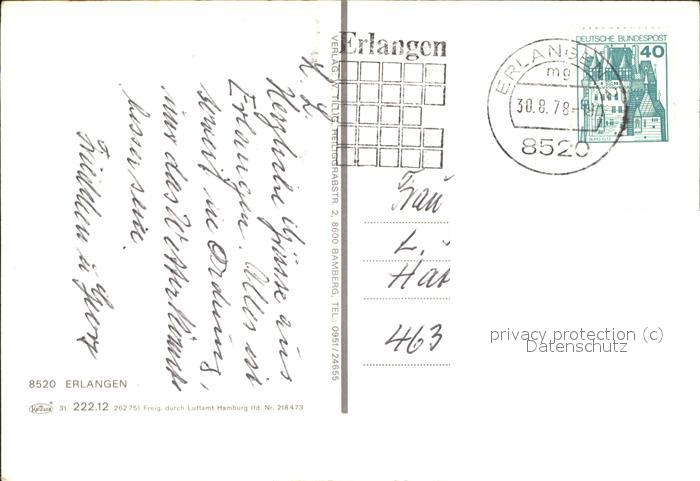 K. L.
Herzliche Grüsse aus
Erlangen. Alles ist
soweit in Ordnung,
nur das Wetter könnte
besser sein.
Georg
8520 ERLANGEN
31 222.12 262751 Freig. durch Luftamt Hamburg lfd. Nr. 218473
VERLAG W. TILLIG, HEILIGGRABSTR. 2, 8600 BAMBERG, TEL. 0951/24655
Erlangen
ERLANGEN
mg
30.8.78
8520
DEUTSCHE BUNDESPOST
40
Frau
L.
Hat
463
privacy protection (c)
Datenschutz